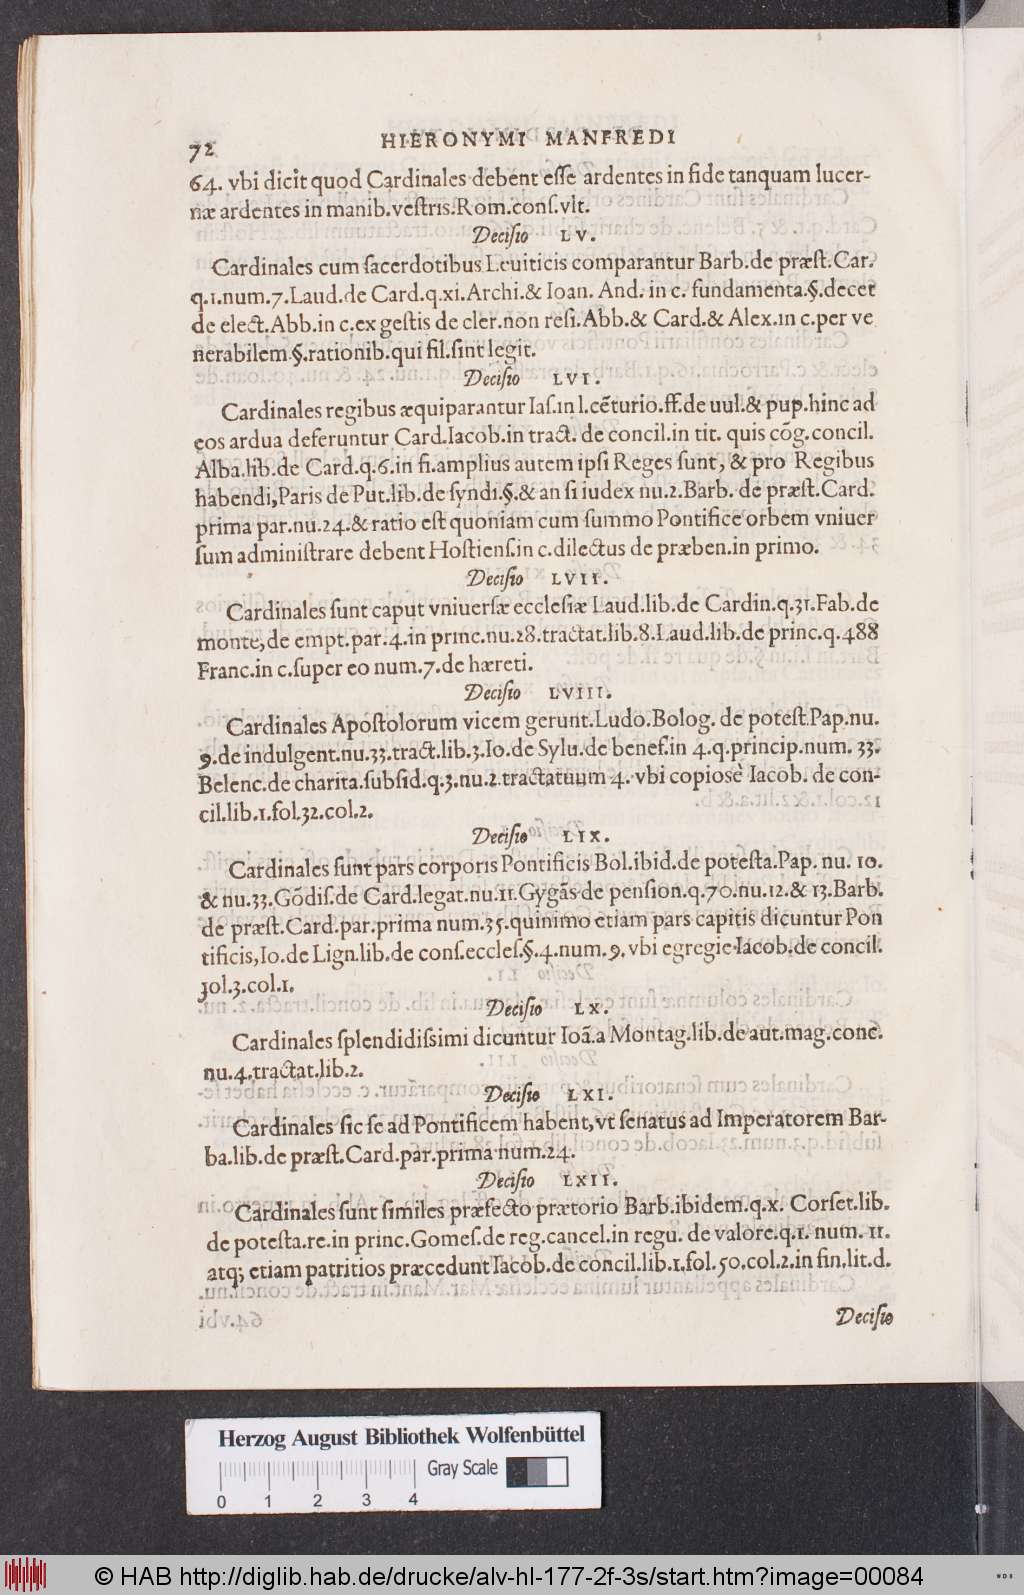 72 HIERONYMI MANFREDI
64. vbi dicit quod Cardinales debent eſſe ardentes in fide tanquam lucer-
næ ardentes in manib.veſtris.Rom.conſ.vlt.
Deciſio LV.
Cardinales cum ſacerdotibus Leuiticis comparantur Barb.de præſt.Car.
q.1.num.7.Laud.de Card.q.xi.Archi.& Ioan. And. in c. fundamenta.§.decet
de elect.Abb.in c.ex geſtis de cler.non reſi.Abb.& Card.& Alex.in c.per ve
nerabilem.§.rationib.qui fil.ſint legit.
Deciſio LVI.
Cardinales regibus æquiparantur Iaſ.in l.cẽturio.ff.de uul.& pup.hinc ad
eos ardua deferuntur Card.Iacob.in tract. de concil.in tit. quis cõg.concil.
Alba.lib.de Card.q.6.in fi.amplius autem ipſi Reges ſunt, & pro Regibus
habendi,Paris de Put.lib.de ſyndi.§.& an ſi iudex nu.2.Barb. de præſt.Card.
prima par.nu.24.& ratio eſt quoniam cum ſummo Pontifice orbem vniuer
ſum adminiſtrare debent Hoſtienſ.in c.dilectus de præben.in primo.
Deciſio LVII.
Cardinales ſunt caput vniuerſæ eccleſiæ Laud.lib.de Cardin.q.31.Fab.de
monte,de empt.par.4.in princ.nu.28.tractat.lib.8.Laud.lib.de princ.q.488
Franc.in c.ſuper eo num.7.de hæreti.
Deciſio LVIII.
Cardinales Apoſtolorum vicem gerunt.Ludo.Bolog. de poteſt.Pap.nu.
9.de indulgent.nu.33.tract.lib.3.Io.de Sylu.de benef.in 4.q.princip.num. 33.
Belenc.de charita.ſubſid.q.3.nu.2.tractatuum 4. vbi copiosè Iacob. de con-
cil.lib.1.fol.32.col.2.
Deciſio LIX.
Cardinales ſunt pars corporis Pontificis Bol.ibid.de poteſta.Pap. nu. 10.
& nu.33.Gõdiſ.de Card.legat.nu.11.Gygãs de penſion.q.70.nu.12.& 13.Barb.
de præſt.Card.par.prima num.35.quinimo etiam pars capitis dicuntur Pon
tificis,Io.de Lign.lib.de conſ.eccleſ.§.4.num.9.vbi egregie Iacob.de concil.
fol.3.col.1.
Deciſio LX.
Cardinales ſplendidiſsimi dicuntur Ioã.a Montag.lib.de aut.mag.conc.
nu.4.tractat.lib.2.
Deciſio LXI.
Cardinales ſic ſe ad Pontificem habent,vt ſenatus ad Imperatorem Bar-
ba.lib.de præſt.Card.par.prima num.24.
Deciſio LXII.
Cardinales ſunt ſimiles præfecto prætorio Barb.ibidem.q.x. Corſet.lib.
de poteſta.re.in princ.Gomeſ.de reg.cancel.in regu. de valore.q.1. num. 11.
atq; etiam patritios præcedunt Iacob.de concil.lib.1.fol.50.col.2.in fin.lit.d.
Deciſio
Herzog August Bibliothek Wolfenbüttel
Gray Scale
0 1 2 3 4
© HAB http://diglib.hab.de/drucke/alv-hl-177-2f-3s/start.htm?image=00084